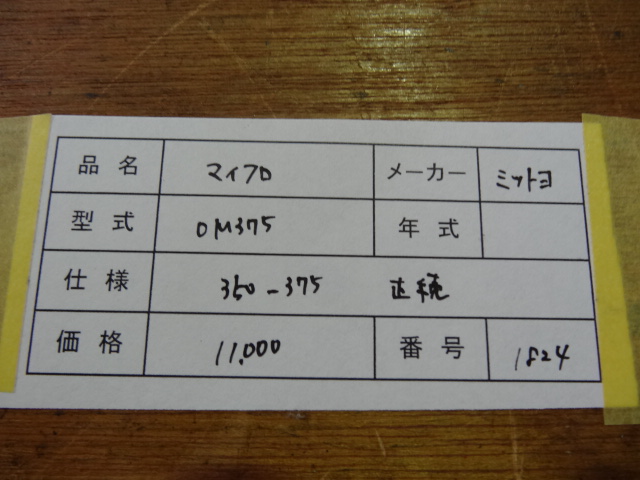 品名 マイクロ メーカー ミツトヨ
型式 OM375 年式
仕様 350-375
価格 11,000 番号 1824